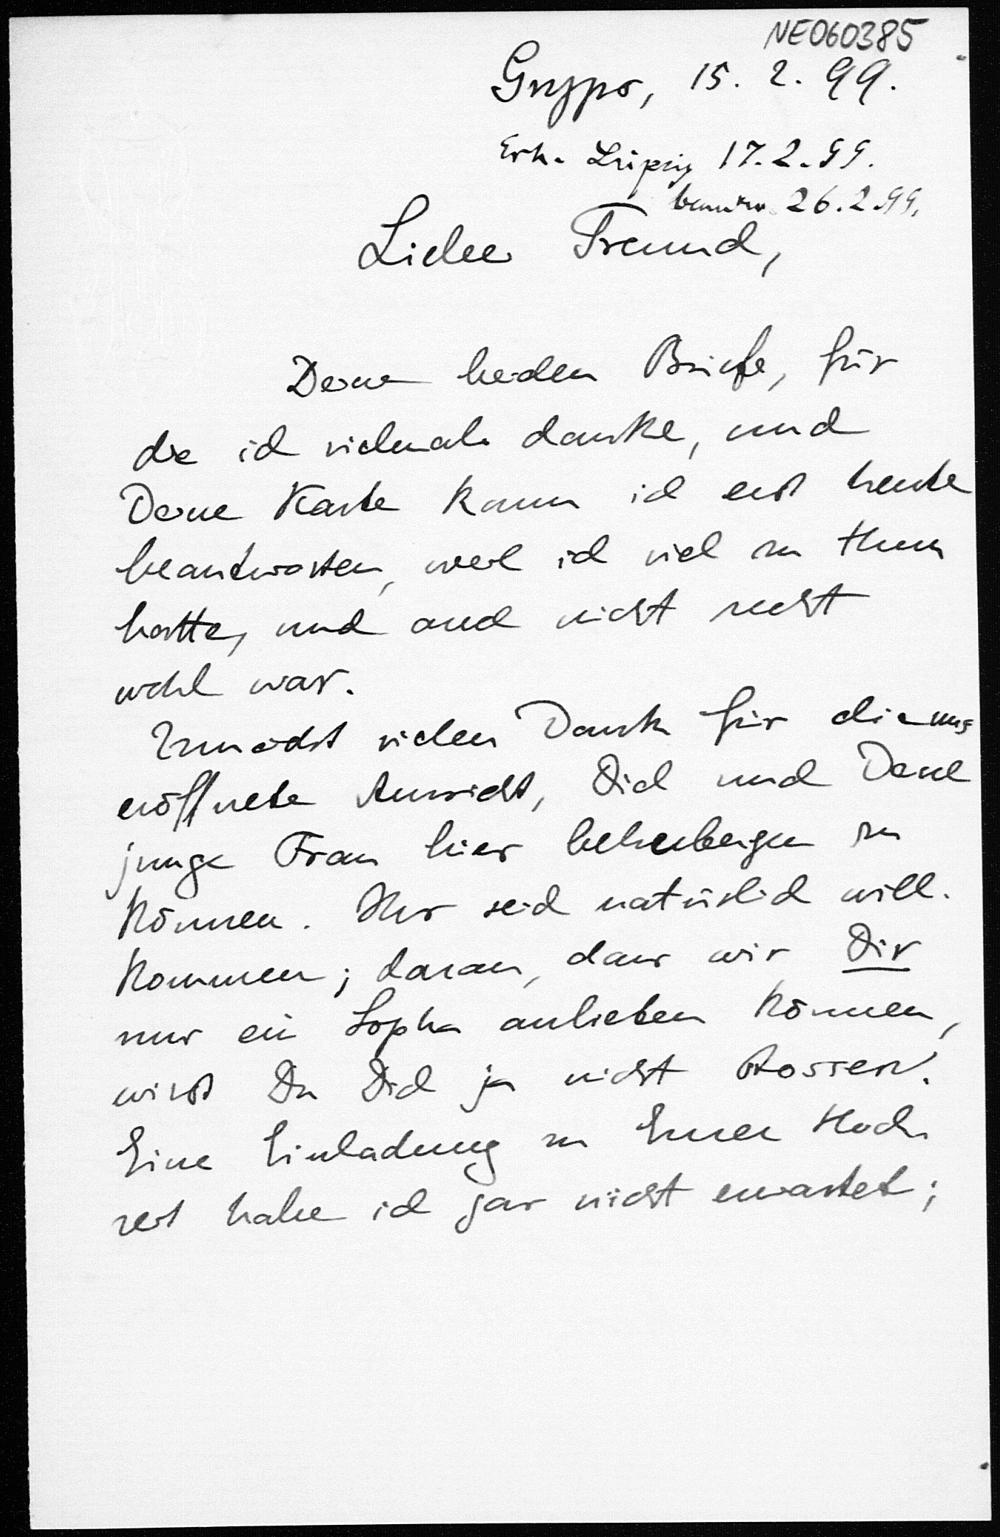 NE060385
Gryps, 15. 2. 99.
Erh. Leipzig 17.2.99.
beantw. 26.2.99.
Lieber Freund,
Deine beiden Briefe, für
die ich vielmals danke, und
Deine Karte kann ich erst heute
beantworten, weil ich viel zu thun
hatte, und auch nicht recht
wohl war.
Zunächst vielen Dank für die uns
eröffnete Aussicht, Dich und Deine
junge Frau hier beherbergen zu
können. Ihr seid natürlich will-
kommen; daran, dass wir Dir
nur ein Sopha anbieten können,
wirst Du Dich ja nicht stossen.
Eine Einladung zu Eurer Hoch
zeit habe ich gar nicht erwartet;